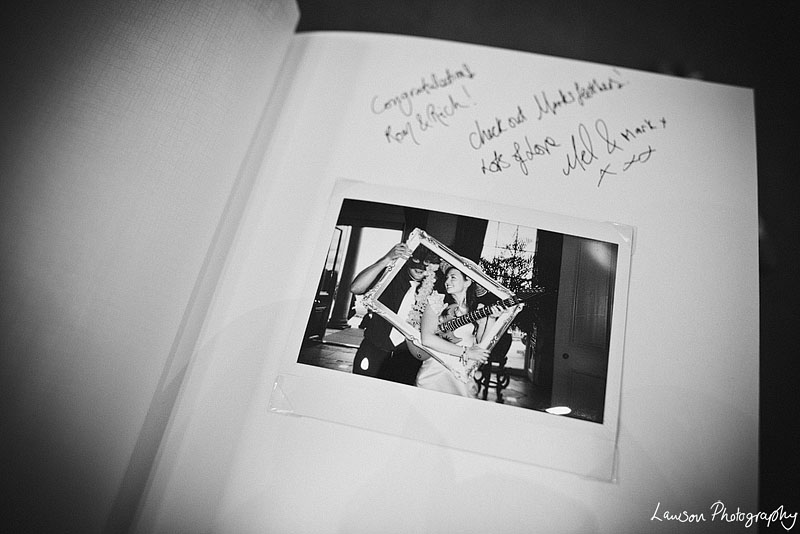 Congratulations
Rom & Rich!
Check out Marks feathers!
Lots of Love
Mel & Mark x
x xx
Lawson Photography